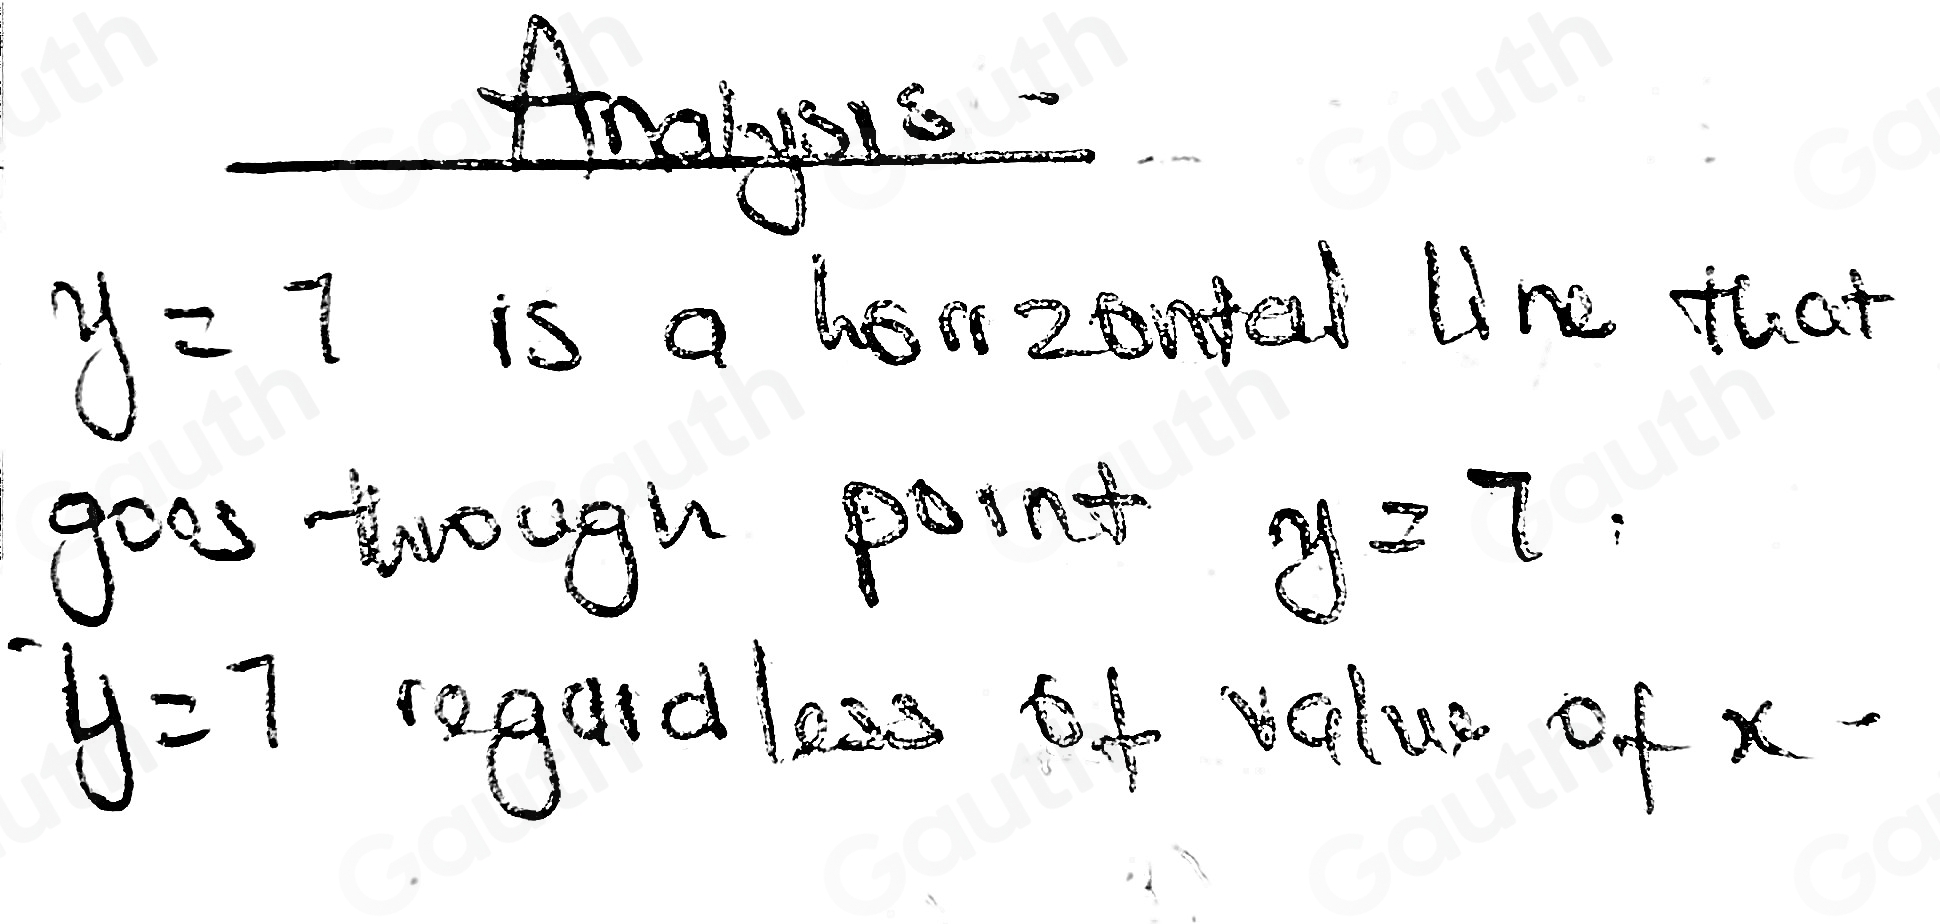 Analysis -
y = 7 is a horizontal line that
goes through point y = 7.
y = 7 regardless of value of x -